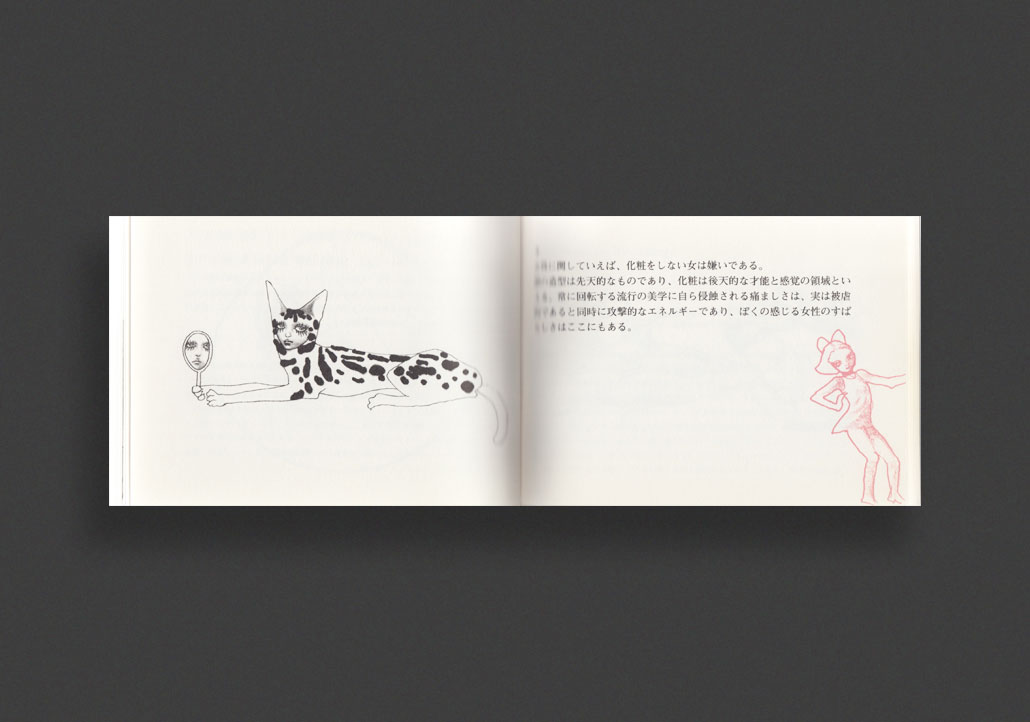 関していえば、化粧をしない女は嫌いである。
造型は先天的なものであり、化粧は後天的な才能と感覚の領域とい
常に回転する流行の美学に自ら侵蝕される痛ましさは、実は被虐
であると同時に攻撃的なエネルギーであり、ぼくの感じる女性のすば
しさはここにもある。